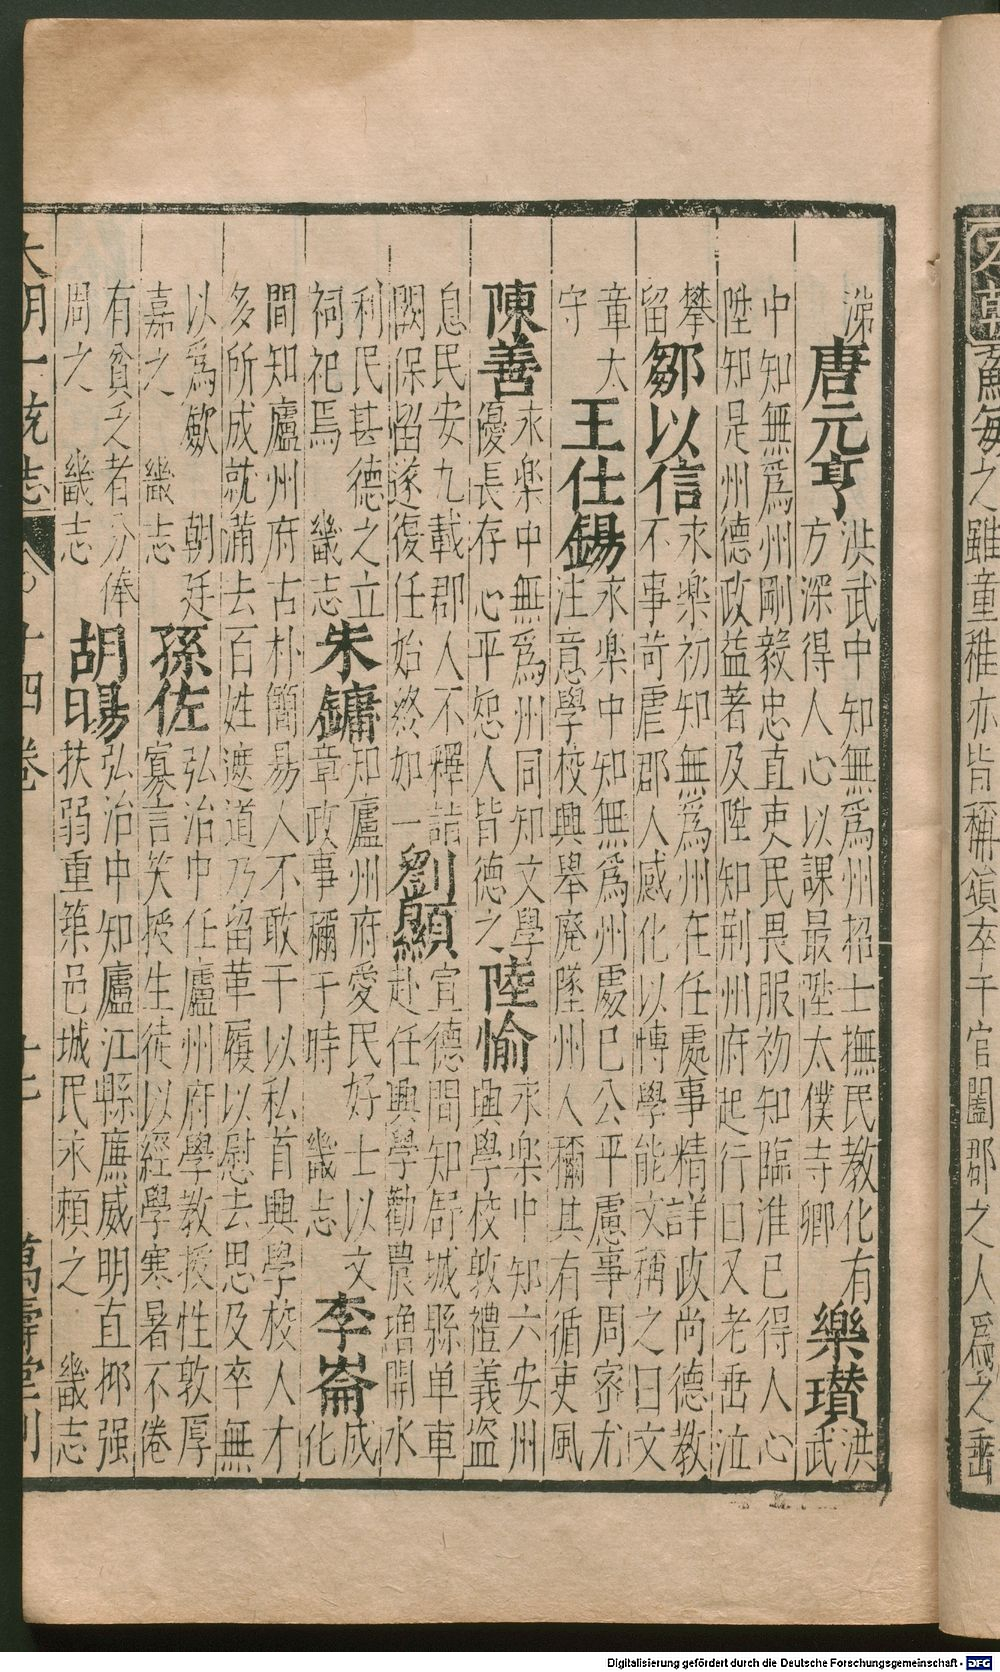 本朝
之雖童稚亦皆稱卒于官闔郡之人爲之垂
涕 唐元亨 洪武中知無爲州招士撫民教化有方深得人心以課最陞太僕寺卿 樂瓚 洪武
中知無爲州剛毅忠直吏民畏服初知臨淮已得人心陞知是州德政益著及陞知荆州府起行日又老垂泣
攀留 鄒以信 永樂初知無爲州在任處事精詳政尚德教不事苛虐郡人感化以慱學能文稱之曰文
章太守 王仕錫 永樂中知無爲州處已公平慮事周密尤注意學校興舉廢墜州人稱其有循吏風
陳善 永樂中無爲州同知文學優長存心平恕人皆德之 陸愉 永樂中知六安州興學校敦禮義盜
息民安九載郡人不釋詣闕保留遂復任始終如一 劉顯 宣德間知舒城縣单車赴任興學勸農增開水
利民甚德之立祠祀焉 畿志 朱鏞 知廬州府愛民好士以文章政事稱于時 畿志 李崙 成化
間知廬州府古朴簡易人不敢干以私首興學校人才多所成就滿去百姓遮道乃留革履以慰去思及卒無
以爲歛 朝廷嘉之 畿志 孫佐 弘治中任廬州府學教授性敦厚寡言笑授生徒以經學寒暑不倦
有貧乏者分俸周之 畿志 胡暘 弘治中知廬江縣廉威明直揶强扶弱重築邑城民永頼之 畿志
大明一統志 十四卷 十七 萬壽堂刊
Digitalisierung gefördert durch die Deutsche Forschungsgemeinschaft - DFG